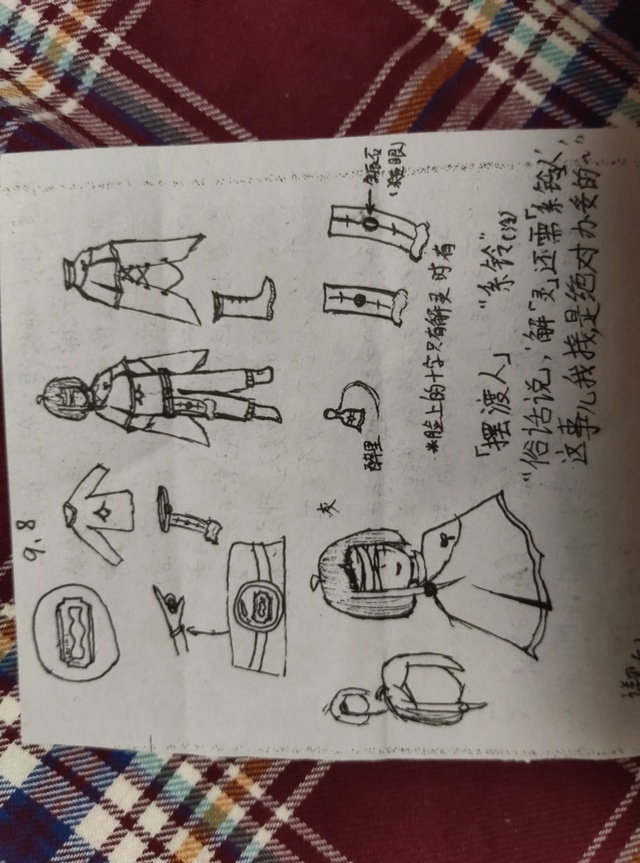 9.8
猫眼石
(凝眼)
*脸上的十字只有解灵时有
醉里
灰
「摆渡人」 “系铃”(泠)
“俗话说,‘解「灵」还需「系铃人’,
这事儿我找,是绝对办妥的~”